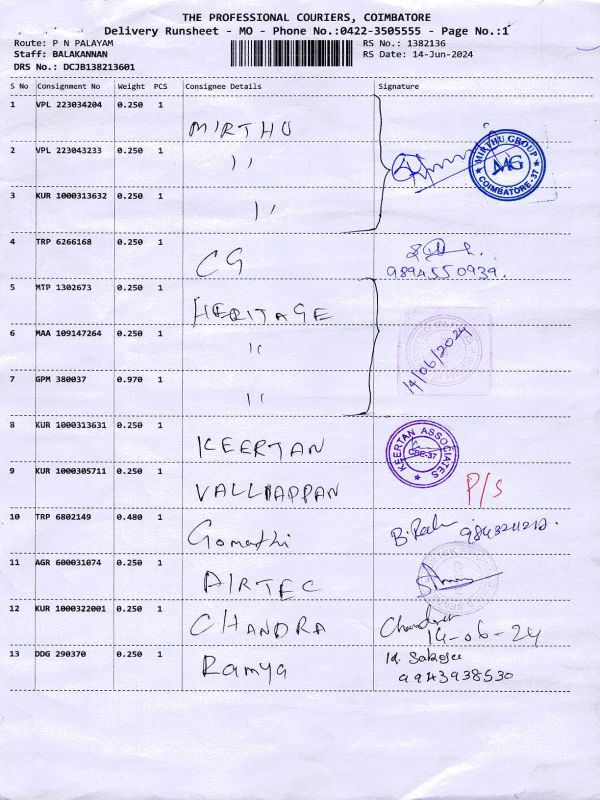 THE PROFESSIONAL COURIERS, COIMBATORE
Delivery Runsheet - MO - Phone No.:0422-3505555 - Page No.:1
Route: P N PALAYAM RS No.: 1382136
Staff: BALAKANNAN RS Date: 14-Jun-2024
DRS No.: DCJB138213601
S No Consignment No Weight PCS Consignee Details Signature
1 VPL 223034204 0.250 1 MIRTHU
2 VPL 223043233 0.250 1 " MIRTHU GROUP MG COIMBATORE-37
3 KUR 1000313632 0.250 1 "
4 TRP 6266168 0.250 1 CG
9894550939.
5 MTP 1302673 0.250 1 HERITAGE
6 MAA 109147264 0.250 1 " 14/06/2024
7 GPM 380037 0.970 1 "
8 KUR 1000313631 0.250 1 KEERTAN KEERTAN ASSOCIATES CBE-37
9 KUR 1000305711 0.250 1 VALLIAPPAN P/S
10 TRP 6802149 0.480 1 Gomathi
11 AGR 600031074 0.250 1 AIRTEC
12 KUR 1000322001 0.250 1 CHANDRA
14-06-24
13 DDG 290370 0.250 1 Ramya
9943938530